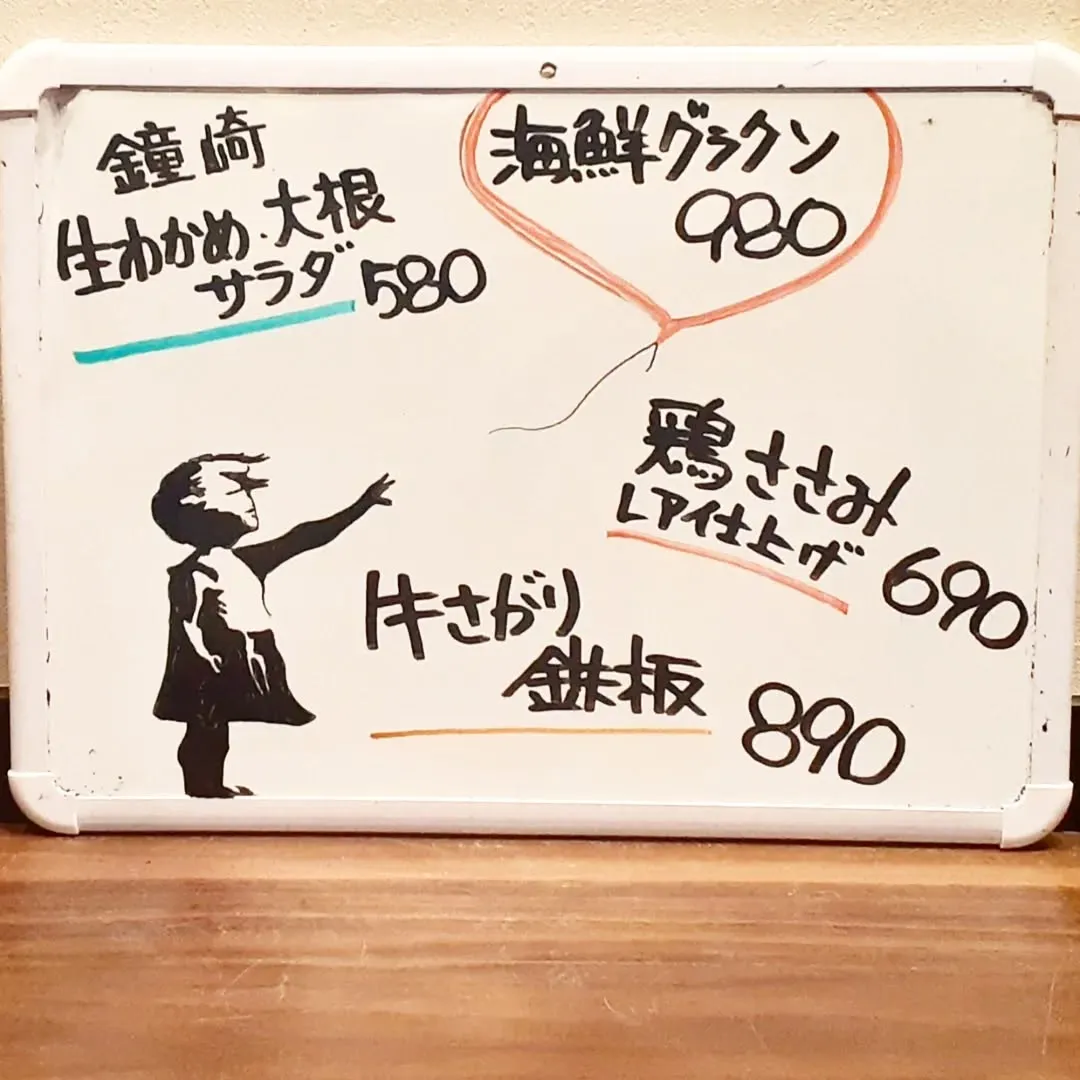 鐘崎
生わかめ・大根
サラダ 580
海鮮グラタン
980
鶏ささみ
レアイ仕上げ 690
牛さがり
鉄板 890